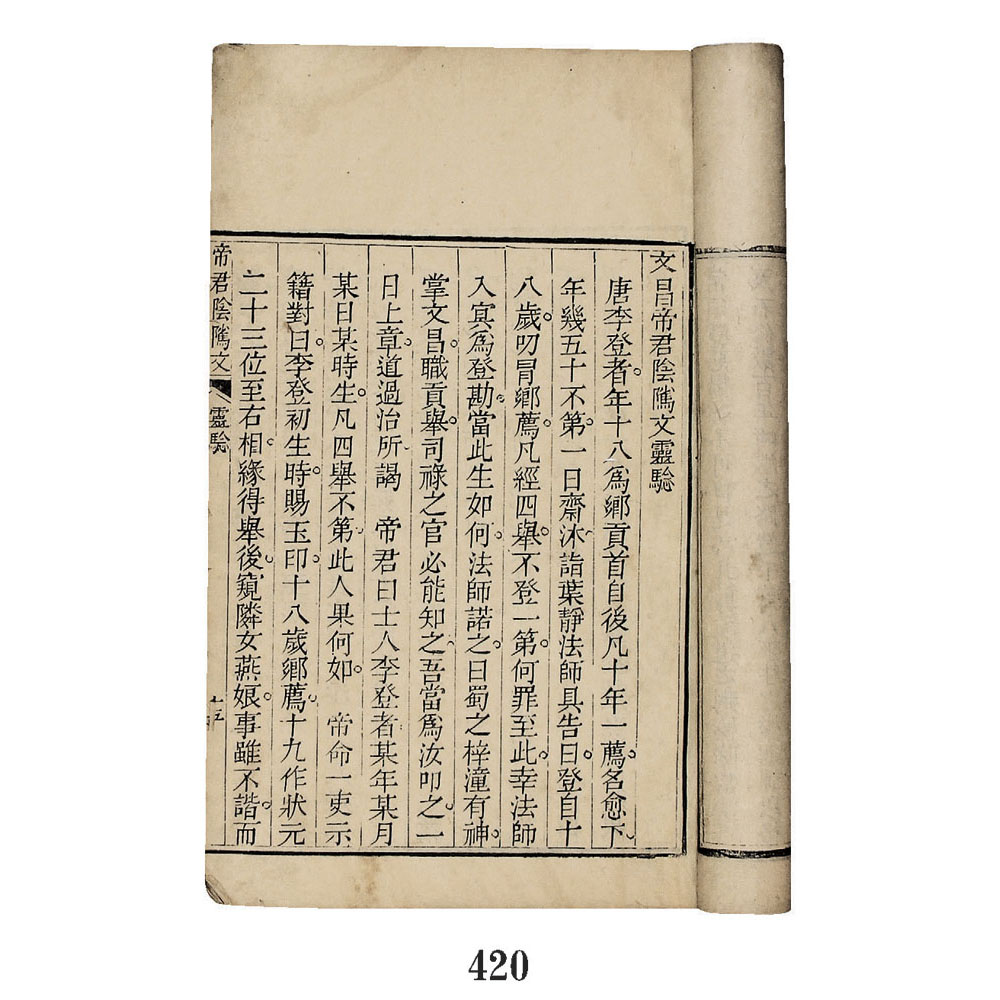 文昌帝君陰隲文靈驗
唐李登者年十八爲鄉貢首自後凡十年一薦名愈下
年幾五十不第一日齋沐詣葉靜法師具告曰登自十
八歲叨冒鄉薦凡經四舉不登一第何罪至此幸法師
入冥爲登勘當此生如何法師諾之曰蜀之梓潼有神
掌文昌職貢舉司祿之官必能知之吾當爲汝叩之一
日上章道過治所謁 帝君曰士人李登者某年某月
某日某時生凡四舉不第此人果何如 帝命一吏示
籍對曰李登初生時賜玉印十八歲鄉薦十九作狀元
二十三位至右相緣得舉後窺隣女燕娘事雖不諧而
帝君陰隲文 靈驗
420